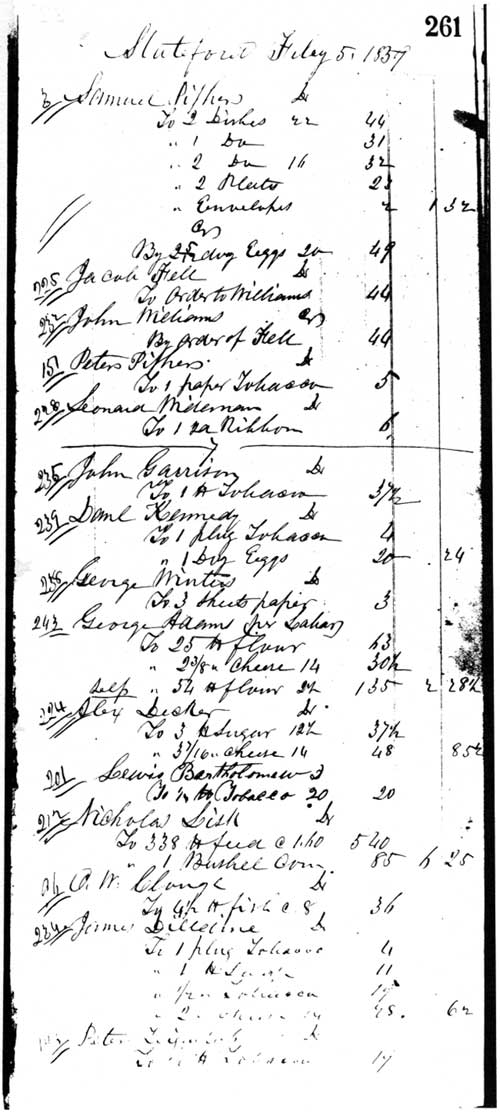 261
Slateford Feby 5. 1857
Samuel Pifher Dr
To 2 Dishes 22 44
" 1 Do 31
" 2 Do 16 32
" 2 Plates 23
" Envelopes 2 1 32
Cr
By doz Eggs 20 49
225 Jacob Fell Dr
To Order to Williams 44
232 John Williams Cr
By order of Fell 44
151 Peters Pifher Dr
To 1 paper Tobacco 5
228 Leonard Wideman Dr
To 1 Ribbon 6
235 John Garrison Dr
To 1 # Tobacco 37½
239 Danl Kennedy Dr
To 1 plug Tobacco 4
" 1 Doz Eggs 20 24
George Winters Dr
To 3 sheets paper 3
243 George Adams (per
To 25 # flour 63
" 2 3/8 " Cheese 14 30½
self " 54 # flour 2½ 135 2 28½
224 Alex Decker Dr
To 3 # Sugar 12½ 37½
" 3 7/16 " cheese 14 48 85½
201 Lewis Bartholomew
To Tobacco 20 20
217 Nicholas Lisk Dr
To 338 # feed c 1.60 5 40
" 1 Bushel Corn 85 6 25
O. W. Clough Dr
To 4½ # fish c. 8 36
234 James Dr
To 1 plug Tobacco 4
" 1 # Sugar 11
" Tobacco
" Cheese 14
Peter Dr
To # Tobacco